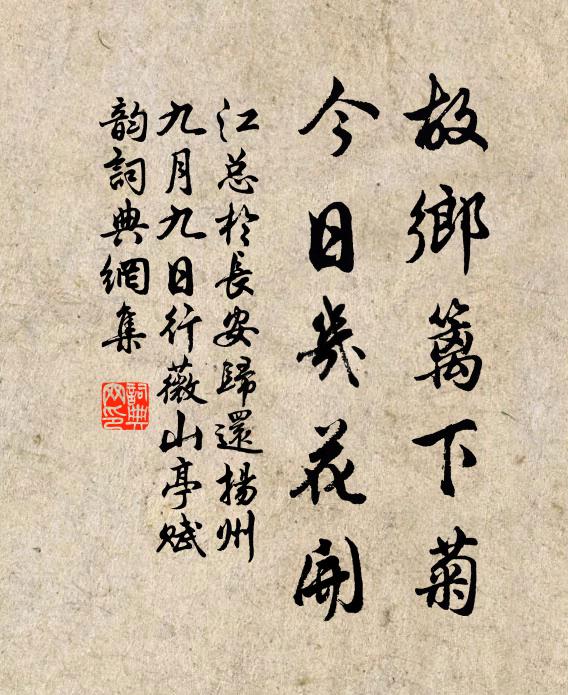 故鄉籬下菊
今日幾花開
江总於長安歸還揚州
九月九日行薇山亭赋
韵詞典網集
詞典
网印